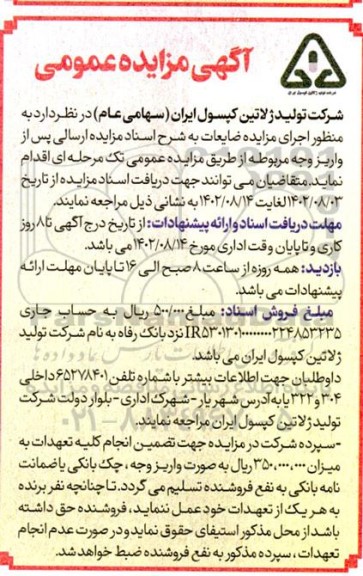 آگهی مزایده عمومی
شرکت تولید ژلاتین کپسول ایران
شرکت تولید ژلاتین کپسول ایران (سهامی عام) در نظر دارد به
منظور اجرای مزایده ضایعات به شرح اسناد مزایده ارسالی پس از
واریز وجه مربوطه از طریق مزایده عمومی تک مرحله ای اقدام
نماید. متقاضیان می توانند جهت دریافت اسناد مزایده از تاریخ
۱۴۰۲/۰۸/۰۳ لغایت ۱۴۰۲/۰۸/۱۴ به نشانی ذیل مراجعه نمایند.
مهلت دریافت اسناد و ارائه پیشنهادات: از تاریخ درج آگهی تا ۸ روز
کاری و تا پایان وقت اداری مورخ ۱۴۰۲/۰۸/۱۴ می باشد.
بازدید: همه روزه از ساعت ۸ صبح الی ۱۶ تا پایان مهلت ارائه
پیشنهادات می باشد.
مبلغ فروش اسناد: مبلغ ۵۰۰/۰۰۰ ریال به حساب جاری
نزد بانک رفاه به نام شرکت تولید
ژلاتین کپسول ایران می باشد.
داوطلبان جهت اطلاعات بیشتر با شماره تلفن ۶۵۲۷۸۴۰۱ داخلی
۳۰۴ و ۳۲۲ یا به آدرس شهریار - شهرک اداری - بلوار دولت شرکت
تولید ژلاتین کپسول ایران مراجعه نمایند.
-سپرده شرکت در مزایده جهت تضمین انجام کلیه تعهدات به
میزان ۳۵۰,۰۰۰,۰۰۰ ریال به صورت واریز وجه، چک بانکی یا ضمانت
نامه بانکی به نفع فروشنده تسلیم می گردد. تا چنانچه نفر برنده
به هر یک از تعهدات خود عمل ننماید، فروشنده حق داشته
باشد از محل مذکور استیفای حقوق نماید و در صورت عدم انجام
تعهدات، سپرده مذکور به نفع فروشنده ضبط خواهد شد.